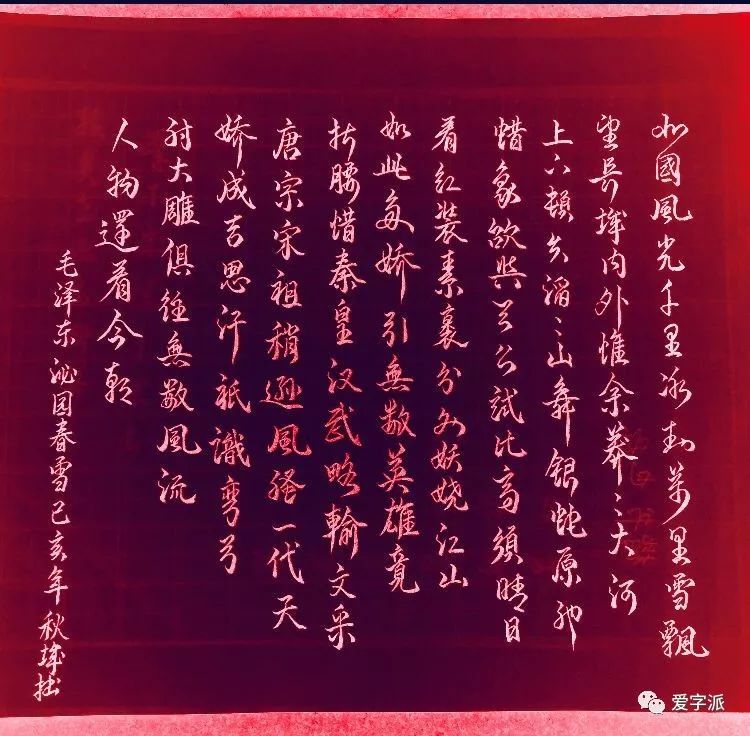 北國風光千里冰封萬里雪飄
望長城内外惟余莽〻大河
上下頓失滔〻山舞銀蛇原馳
蜡象欲與天公試比高須晴日
看红装素裹分外妖娆江山
如此多娇引無数英雄竟
折腰惜秦皇汉武略輸文采
唐宗宋祖稍遜風骚一代天
娇成吉思汗衹識弯弓
射大雕俱往無数風流
人物還看今朝
毛泽东沁园春雪己亥年秋城拙
爱字派